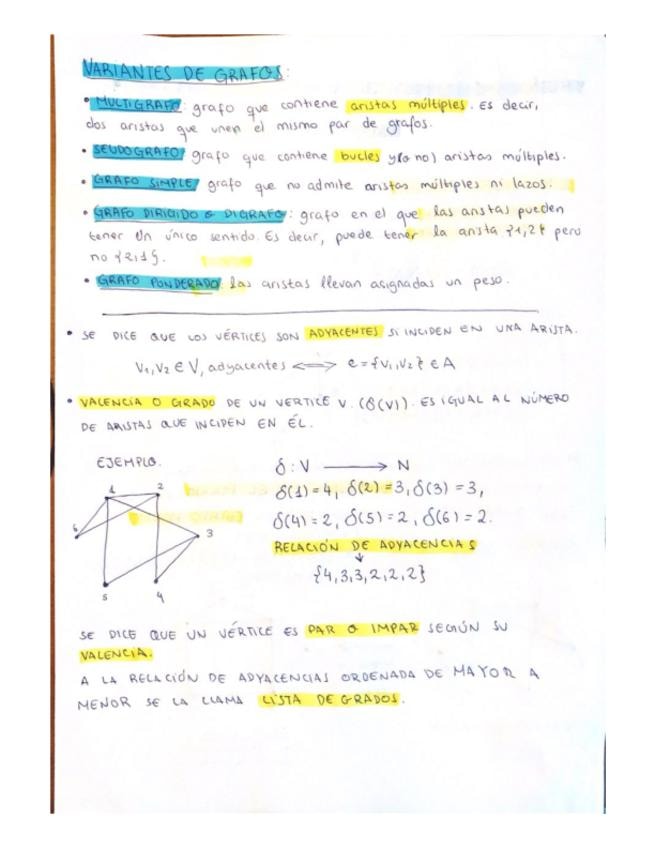 VARIANTES DE GRAFOS:
• MULTIGRAFO: grafo que contiene aristas múltiples. Es decir,
dos aristas que unen el mismo par de grafos.
• SEUDOGRAFO: grafo que contiene bucles y(o no) aristas múltiples.
• GRAFO SIMPLE: grafo que no admite aristas múltiples ni lazos.
• GRAFO DIRIGIDO o DIGRAFO: grafo en el que las aristas pueden
tener un único sentido. Es decir, puede tener la arista {1,2} pero
no {2,1}.
• GRAFO PONDERADO: las aristas llevan asignadas un peso.
• SE DICE QUE LOS VÉRTICES SON ADYACENTES SI INCIDEN EN UNA ARISTA.
V₁,V₂ ∈ V, adyacentes ⟺ e = {V₁,V₂} ∈ A
• VALENCIA O GRADO DE UN VERTICE V. (δ(V)). ES IGUAL AL NÚMERO
DE ARISTAS QUE INCIDEN EN ÉL.
EJEMPLO.
1 2 3 4 5 6
δ: V ⟶ N
δ(1) = 4, δ(2) = 3, δ(3) = 3,
δ(4) = 2, δ(5) = 2, δ(6) = 2.
RELACIÓN DE ADYACENCIAS
↓
{4,3,3,2,2,2}
SE DICE QUE UN VÉRTICE ES PAR O IMPAR SEGÚN SU
VALENCIA.
A LA RELACIÓN DE ADYACENCIAS ORDENADA DE MAYOR A
MENOR SE LA LLAMA LISTA DE GRADOS.